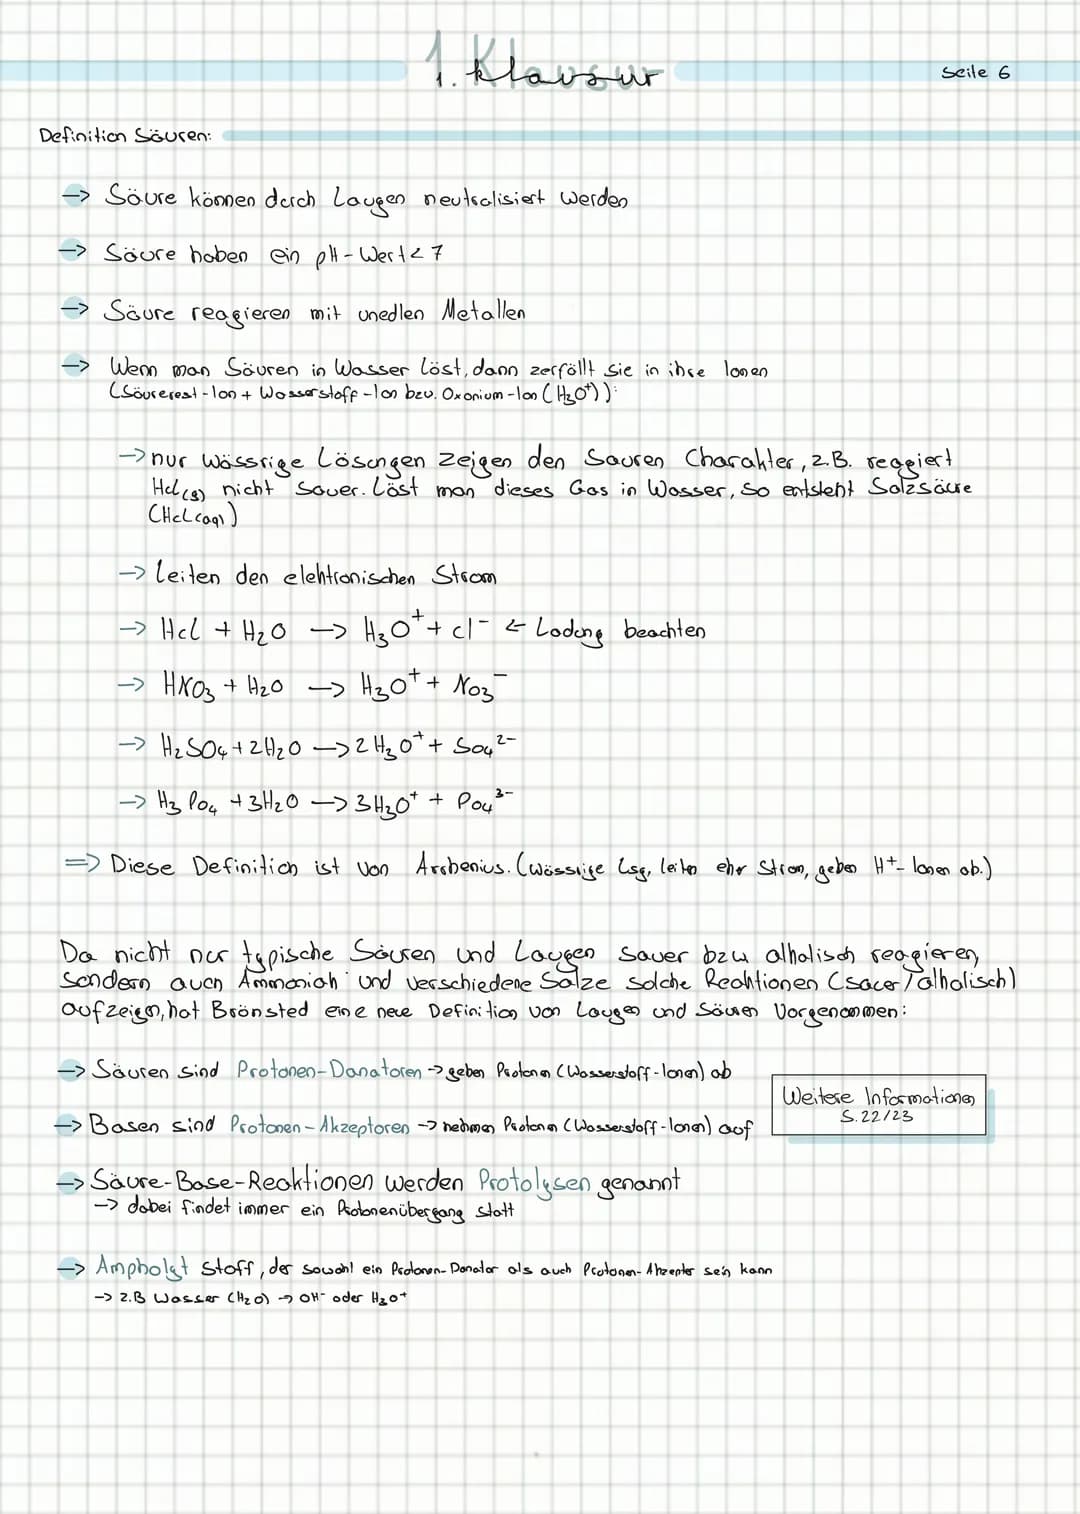 1. Klausur
Seite 6
Definition Säuren:
-> Säure können durch Laugen neutralisiert werden
-> Säure haben ein pH-Wert < 7
-> Säure reagieren mit unedlen Metallen
-> Wenn man Säuren in Wasser löst, dann zerfällt sie in ihre Ionen
(Säurerest-Ion + Wasserstoff-Ion bzw. Oxonium-Ion (H₃O⁺)):
-> nur wässrige Lösungen zeigen den Sauren Charakter, z.B. reagiert
HCl(g) nicht sauer. Löst man dieses Gas in Wasser, so entsteht Salzsäure
(HCl(aq))
-> Leiten den elektronischen Strom
-> HCl + H₂O -> H₃O⁺ + Cl⁻ <- Ladung beachten
-> HNO₃ + H₂O -> H₃O⁺ + NO₃⁻
-> H₂SO₄ + 2H₂O -> 2H₃O⁺ + SO₄²⁻
-> H₃PO₄ + 3H₂O -> 3H₃O⁺ + PO₄³⁻
=> Diese Definition ist von Arrhenius. (wässrige Lsg, leiten ehr Strom, geben H⁺- Ionen ab.)
Da nicht nur typische Säuren und Laugen sauer bzw alkalisch reagieren,
sondern auch Ammoniak und verschiedene Salze solche Reaktionen (sauer/alkalisch)
aufzeigen, hat Brönsted eine neue Definition von Laugen und Säuren Vorgenommen:
-> Säuren sind Protonen-Donatoren -> geben Protonen (Wasserstoff-Ionen) ab
Weitere Informationen
S. 22/23
-> Basen sind Protonen-Akzeptoren -> nehmen Protonen (Wasserstoff-Ionen) auf
-> Säure-Base-Reaktionen werden Protolysen genannt
-> dabei findet immer ein Protonenübergang statt
-> Ampholyt Stoff, der sowohl ein Protonen-Donator als auch Protonen-Akzeptor sein kann
-> z.B Wasser (H₂O) -> OH⁻ oder H₃O⁺